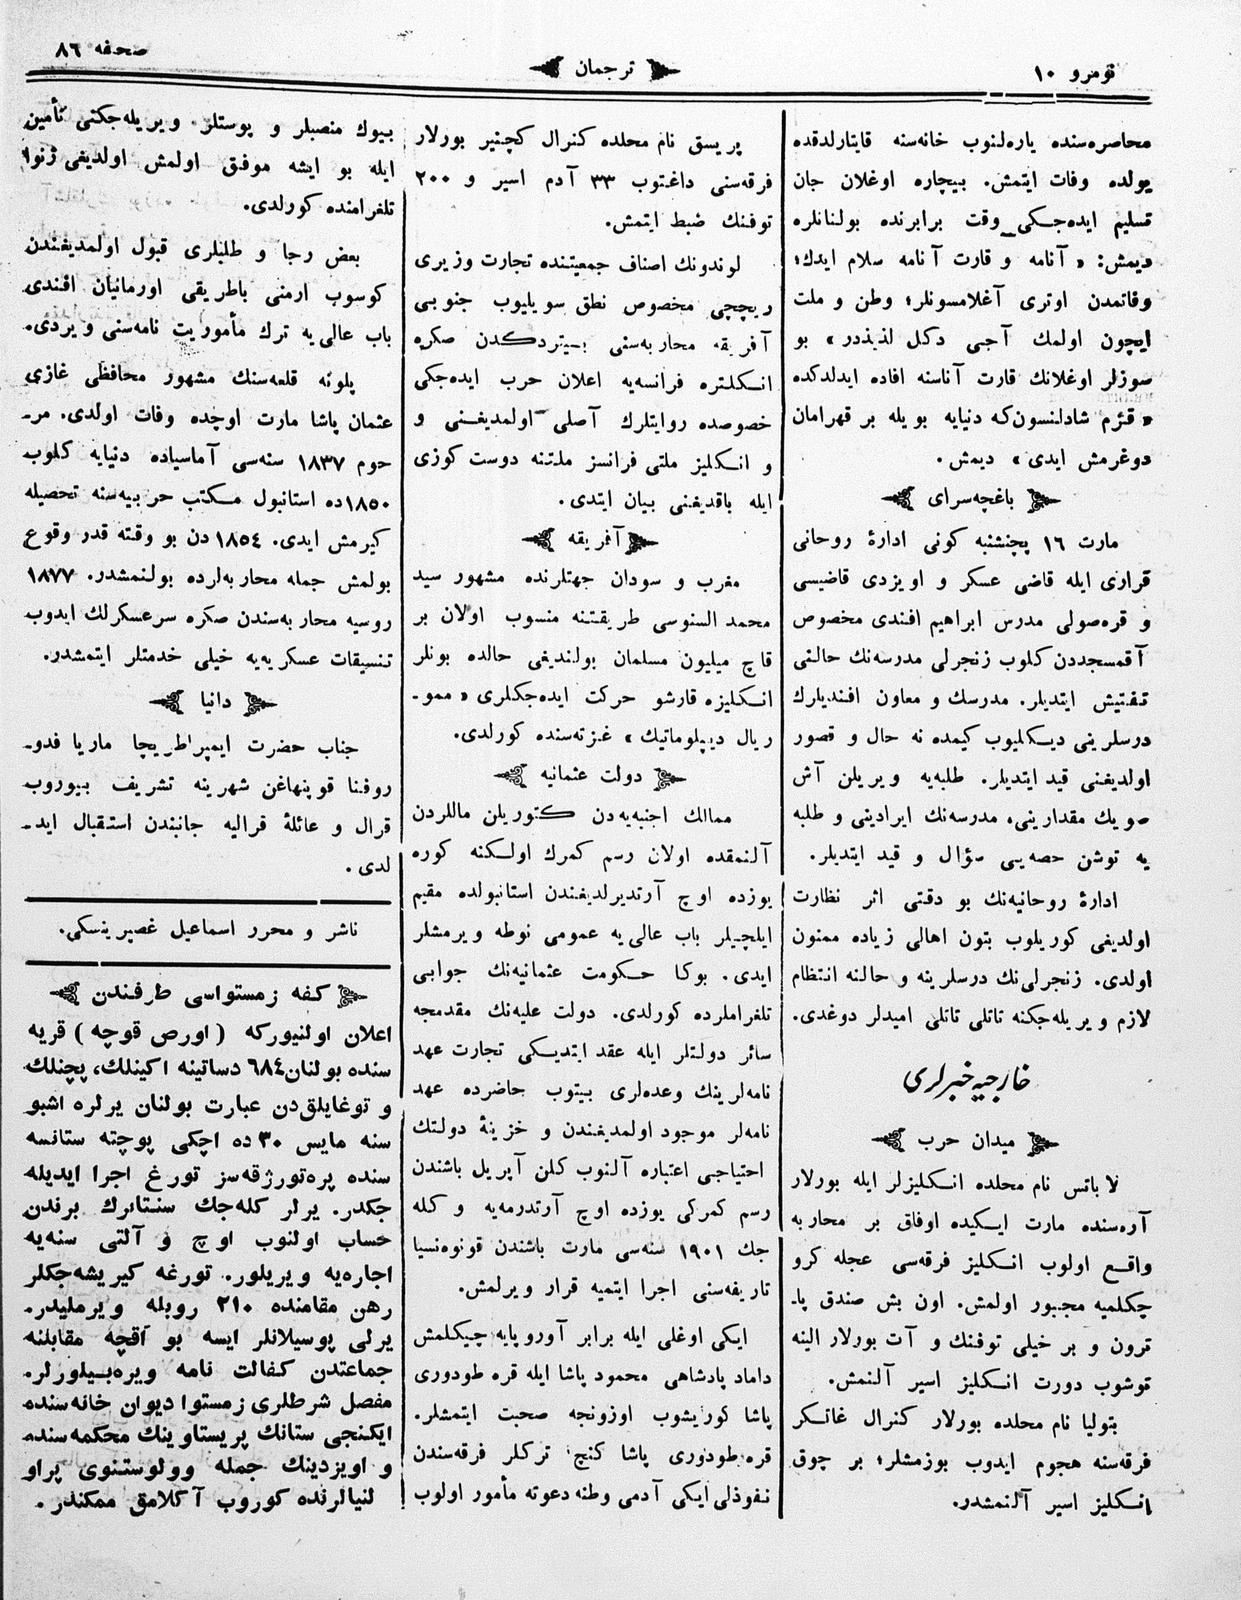 نومرو ١٠
ترجمان
صحفه ٨٦
محاصره‌سنده یاره‌لنوب خانه‌سنه قایتارلدقده
یولده وفات ایتمش. بیچاره اوغلان جان
تسلیم ایده‌جکی وقت برابرنده بولنانلره
دیمش: «آنامه و قارت آنامه سلام ایدك؛
وفاتمدن اوتری آغلامسونلر؛ وطن و ملت
ایچون اولمك آجی دکل لذیذدر» بو
سوزلر اوغلانك قارت آناسنه افاده ایدلدکده
«قزم شادلنسون‌که دنیایه بویله بر قهرامان
دوغرمش ایدی» دیمش.
باغچه‌سرای
مارت ١٦ پچنشنبه کونی ادارهٔ روحانی
قراری ایله قاضی عسکر و اویزدی قاضیسی
و قره‌صولی مدرس ابراهیم افندی مخصوص
آقمسجددن کلوب زنجرلی مدرسه‌نك حالنی
تفتیش ایتدیلر. مدرسك و معاون افندیلرك
درسلرینی دیکلیوب کیمده نه حال و قصور
اولدیغنی قید ایتدیلر. طلبه‌یه ویریلن آش
صویك مقدارینی، مدرسه‌نك ایرادینی و طلبه
یه توشن حصه‌یی سؤال و قید ایتدیلر.
ادارهٔ روحانیه‌نك بو دقتی اثر نظارت
اولدیغی کوریلوب بتون اهالی زیاده ممنون
اولدی. زنجرلی‌نك درسلرینه و حالنه انتظام
لازم ویریله‌جکنه تاتلی تاتلی امیدلر دوغدی.
خارجیه خبرلری
میدان حرب
لاباتس نام محلده انکلیزلر ایله بورلار
آره‌سنده مارت ایکیده اوفاق بر محاربه
واقع اولوب انکلیز فرقه‌سی عجله کرو
چکلمیه مجبور اولمش. اون بش صندق پا-
ترون و بر خیلی توفنك و آت بورلار الینه
توشوب دورت انکلیز اسیر آلنمش.
بتولیا نام محلده بورلار کنرال غاتکر
فرقه‌سنه هجوم ایدوب بوزمشلر؛ بر چوق
انکلیز اسیر آلنمشدر.
پریسق نام محلده کنرال کچنیر بورلار
فرقه‌سنی داغتوب ٣٣ آدم اسیر و ٢٠٠
توفنك ضبط ایتمش.
لوندونك اصناف جمعیتنده تجارت وزیری
ریچچی مخصوص نطق سویلیوب جنوبی
آفریقه محاربه‌سنی بیتردکدن صکره
انکلتره فرانسه‌یه اعلان حرب ایده‌جکی
خصوصده روایتلرك آصلی اولمدیغنی و
و انکلیز ملتی فرانسز ملتنه دوست کوزی
ایله باقدیغنی بیان ایتدی.
آفریقه
مغرب و سودان جهتلرنده مشهور سید
محمد السنوسی طریقتنه منسوب اولان بر
قاچ میلیون مسلمان بولندیغی حالده بونلر
انکلیزه قارشو حرکت ایده‌جکلری «ممو-
ریال دیپلوماتیك» غزته‌سنده کورلدی.
دولت عثمانیه
ممالك اجنبیه‌دن کتوریلن ماللردن
آلنمقده اولان رسم کمرك اولکنه کوره
یوزده اوچ آرتدیرلدیغندن استانبولده مقیم
ایلچیلر باب عالی‌یه عمومی نوطه ویرمشلر
ایدی. بوکا حکومت عثمانیه‌نك جوابی
تلغراملرده کورلدی. دولت علیه‌نك مقدمجه
سائر دولتلر ایله عقد ایتدیکی تجارت عهد
نامه‌لرینك وعده‌لری بیتوب حاضرده عهد
نامه‌لر موجود اولمدیغندن و خزینهٔ دولتك
احتیاجی اعتباره آلنوب کلن آپریل باشندن
رسم کمرکی یوزده اوچ آرتدرمه‌یه و کله
جك ١٩٠١ سنه‌سی مارت باشندن قونوه‌نسیا
تاریفه‌سنی اجرا ایتمیه قرار ویرلمش.
ایکی اوغلی ایله برابر آوروپایه چیکلمش
داماد پادشاهی محمود پاشا ایله قره طودوری
پاشا کوریشوب اوزونجه صحبت ایتمشلر.
قره طودوری پاشا کنج ترکلر فرقه‌سندن
نفوذلی ایکی آدمی وطنه دعوته مأمور اولوب
بیوك منصبلر و پوستلر ویریله‌جکنی تأمین
ایله بو ایشه موفق اولمش اولدیغی ژنوا
تلغرامنده کورلدی.
بعض رجا و طلبلری قبول اولمدیغندن
کوسوب ارمنی باطریقی اورمانیان افندی
باب عالی‌یه ترك مأموریت نامه‌سنی ویردی.
پلونه قلعه‌سنك مشهور محافظی غازی
عثمان پاشا مارت اوچده وفات اولدی. مر-
حوم ١٨٣٧ سنه‌سی آماسیاده دنیایه کلوب
١٨٥٠ده استانبول مکتب حربیه‌سنه تحصیله
کیرمش ایدی. ١٨٥٤دن بو وقته قدر وقوع
بولمش جمله محاربه‌لرده بولنمشدر. ١٨٧٧
روسیه محاربه‌سندن صکره سرعسکرلك ایدوب
تنسیقات عسکریه‌یه خیلی خدمتلر ایتمشدر.
دانیا
جناب حضرت ایمپراطریچا ماریا فدو-
روفنا قوپنهاغن شهرینه تشریف بیوروب
قرال و عائلهٔ قرالیه جانبندن استقبال اید-
لدی.
ناشر و محرر اسماعیل غصپرینسکی.
کفه زمستواسی طرفندن
اعلان اولنیورکه (اورص قوچه) قریه
سنده بولنان ٦٨٤ دساتینه اکینلك، پچنلك
و توغایلق‌دن عبارت بولنان یرلره اشبو
سنه مایس ٣٠ده اچکی پوچته ستانسه
سنده پره‌تورژقه‌سز تورغ اجرا ایدیله
جکدر. یرلر کله‌جك سنتابرك برندن
حساب اولنوب اوچ و آلتی سنه‌یه
اجاره‌یه ویریلور. تورغه کیریشه‌جکلر
رهن مقامنده ٢١٠ روبله ویرملیدر.
یرلی پوسیلانلر ایسه بو آقچه مقابلنه
جماعتدن کفالت نامه ویره‌بیلورلر.
مفصل شرطلری زمستوا دیوان خانه‌سنده
ایکنجی ستانك پریستاوینك محکمه‌سنده
و اویزدینك جمله وولوستنوی پراو
لنیالرنده کوروب آکلامق ممکندر.